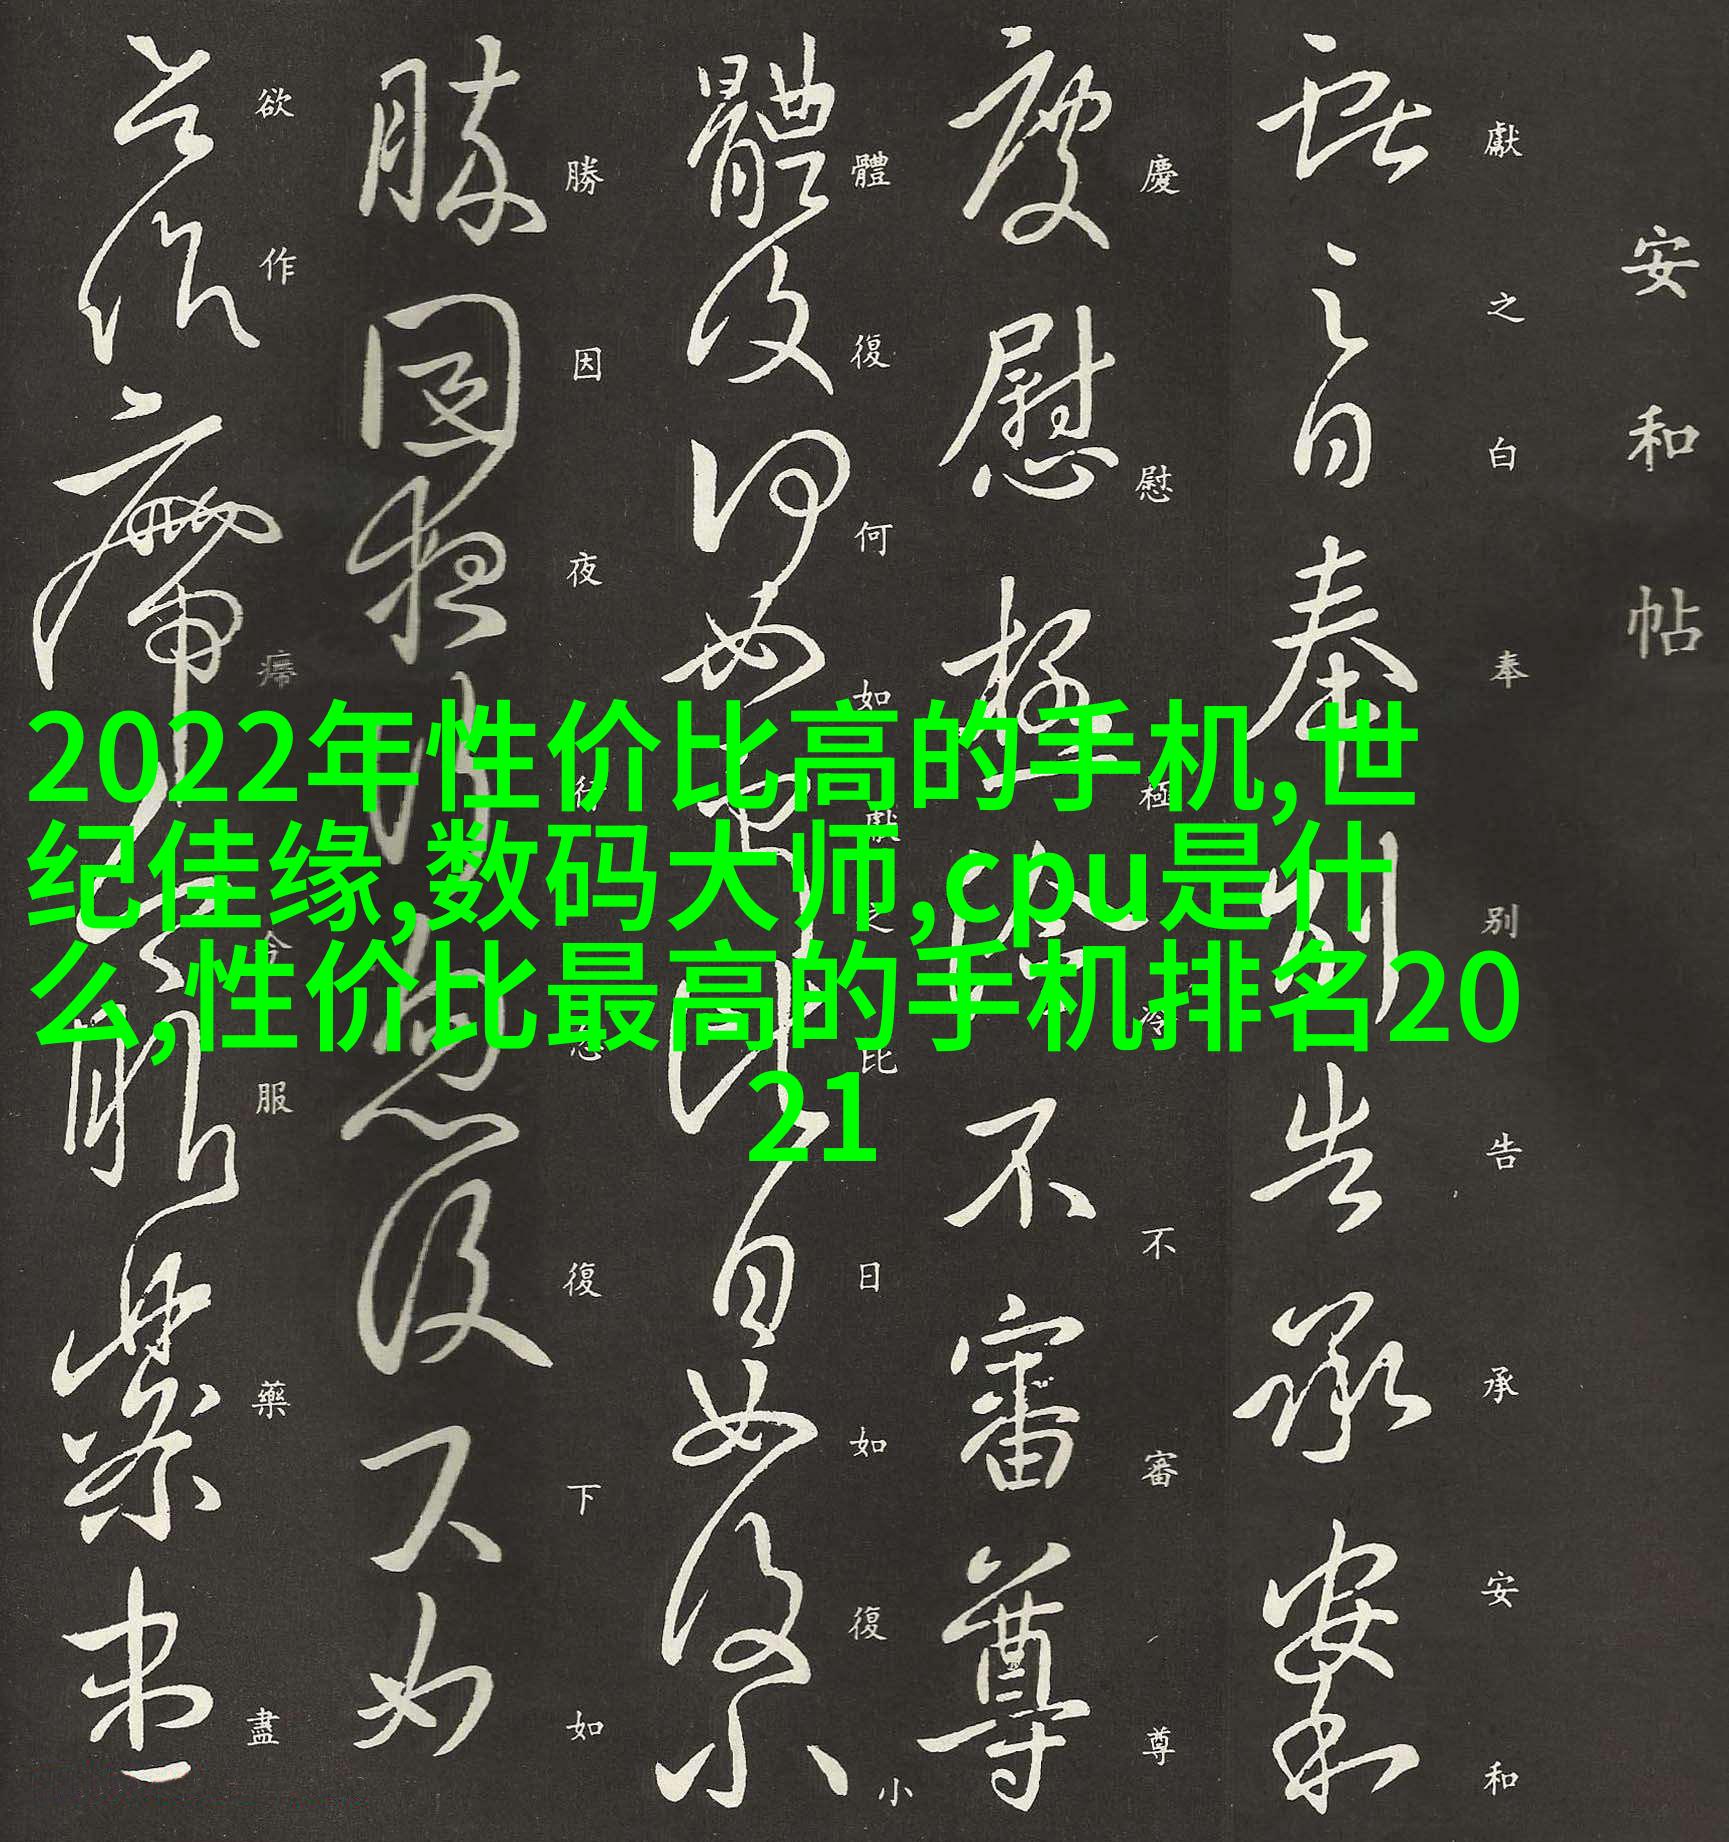 安和帖
獻之白奉別告承安和
慶慰極冷不審尊
體復何如獻之比日如復小
勝因夜行忽復下如
欲作㿃今服藥盡
2022年性价比高的手机,世
纪佳缘,数码大师,cpu是什
么,性价比最高的手机排名20
21